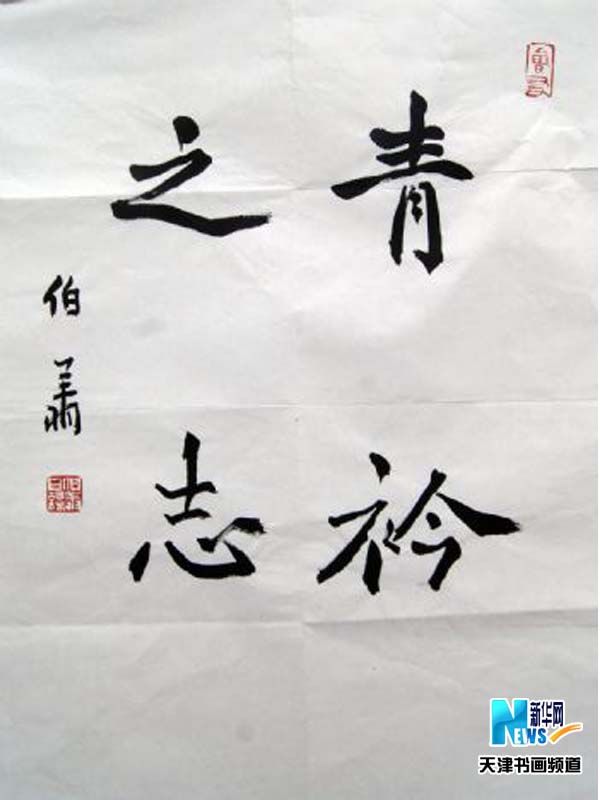 青衿
之志
伯萧
新华网
NEWS
天津书画频道